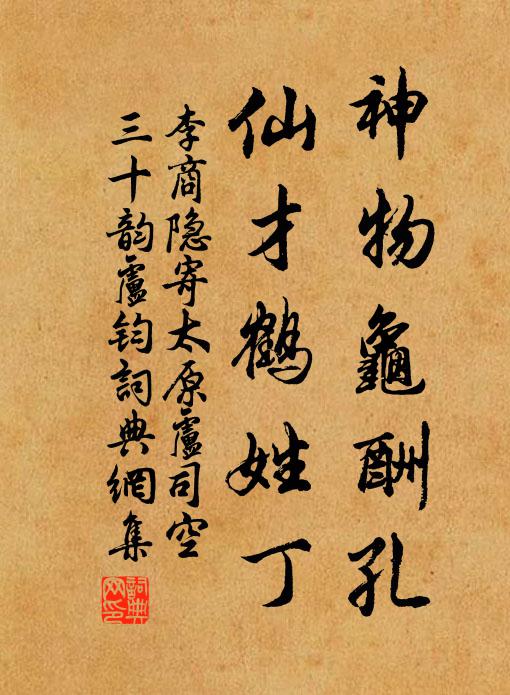 神物龜酬孔
仙才鶴姓丁
李商隐寄太原盧司空
三十韵盧鈞詞典網集
詞典网印